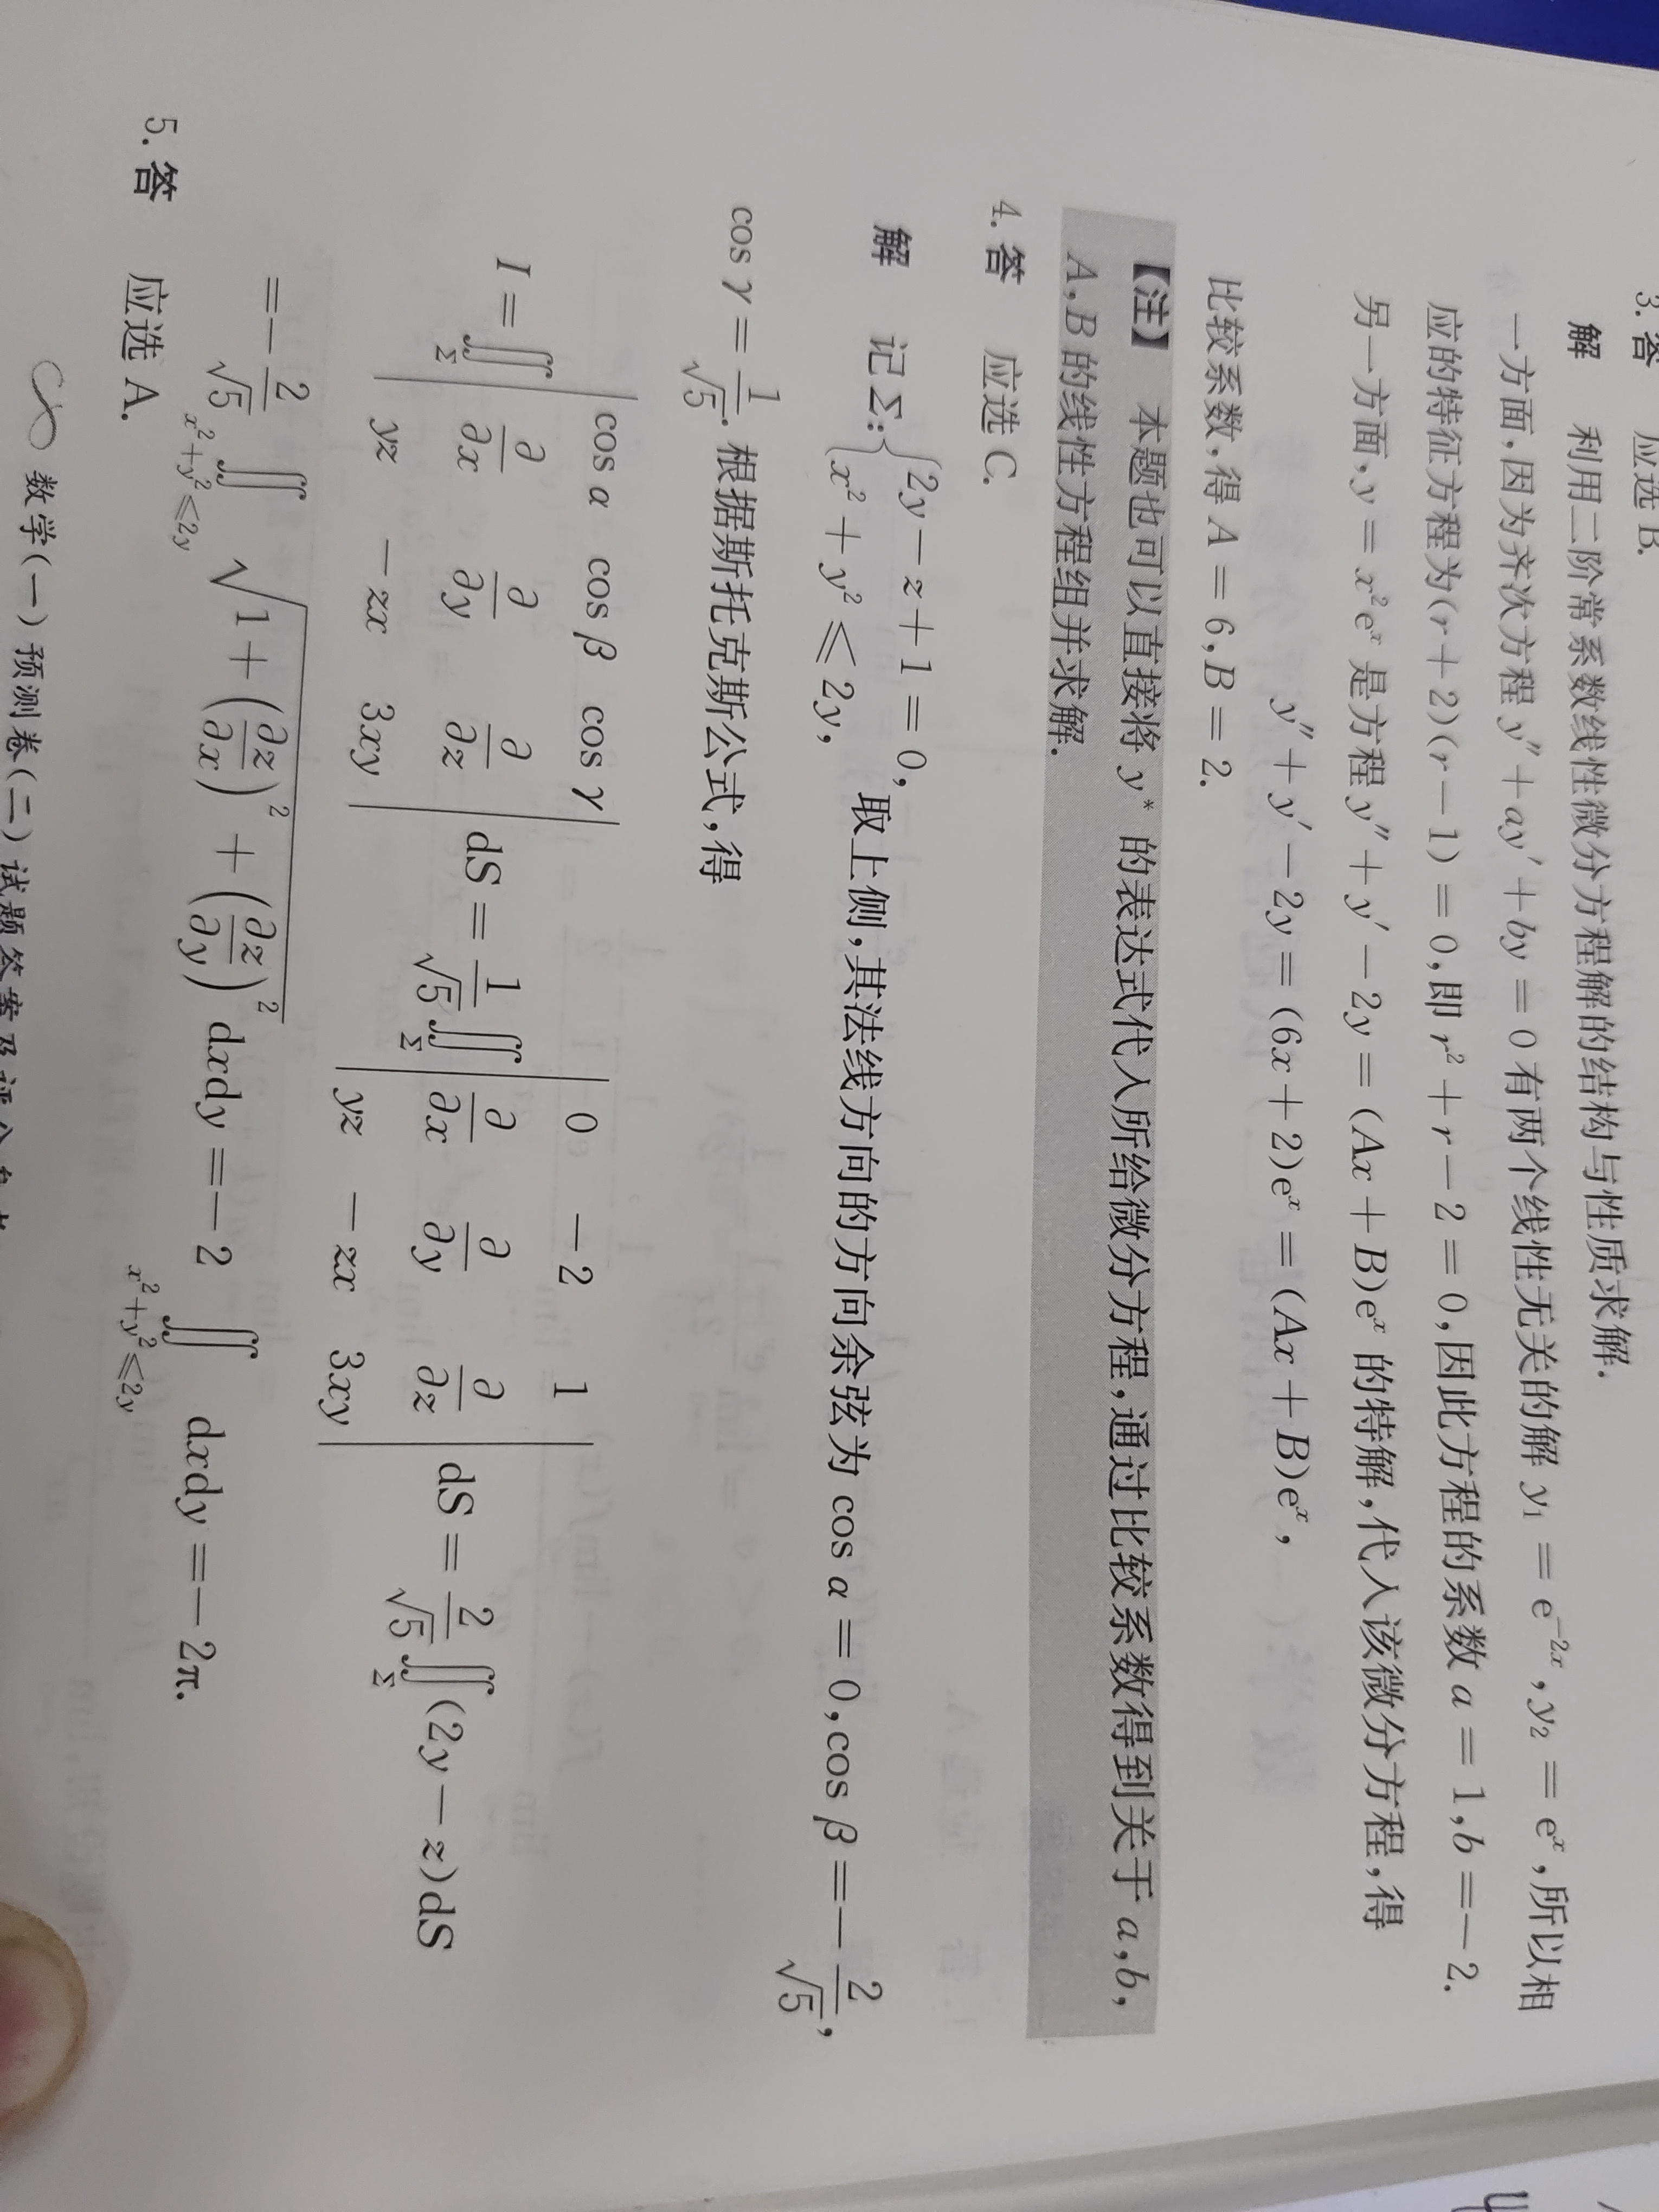 3. 答 应选 B.
解 利用二阶常系数线性微分方程解的结构与性质求解.
一方面,因为齐次方程 y″+ay′+by=0 有两个线性无关的解 y₁=e⁻²ˣ,y₂=eˣ,所以相
应的特征方程为(r+2)(r−1)=0,即 r²+r−2=0,因此方程的系数 a=1,b=−2.
另一方面,y=x²eˣ 是方程 y″+y′−2y=(Ax+B)eˣ 的特解,代入该微分方程,得
y″+y′−2y=(6x+2)eˣ=(Ax+B)eˣ,
比较系数,得 A=6,B=2.
【注】 本题也可以直接将 y* 的表达式代入所给微分方程,通过比较系数得到关于 a,b,
A,B 的线性方程组并求解.
4. 答 应选 C.
解 记 Σ:{2y−z+1=0, x²+y²⩽2y, 取上侧,其法线方向的方向余弦为 cos α=0,cos β=−2/√5,
cos γ=1/√5. 根据斯托克斯公式,得
I=∬_Σ |cos α cos β cos γ; ∂/∂x ∂/∂y ∂/∂z; yz −zx 3xy| dS=1/√5 ∬_Σ |0 −2 1; ∂/∂x ∂/∂y ∂/∂z; yz −zx 3xy| dS=2/√5 ∬_Σ (2y−z)dS
=−2/√5 ∬_{x²+y²⩽2y} √(1+(∂z/∂x)²+(∂z/∂y)²) dxdy=−2 ∬_{x²+y²⩽2y} dxdy=−2π.
5. 答 应选 A.
数学(一)预测卷(二)试题答案及评分参考